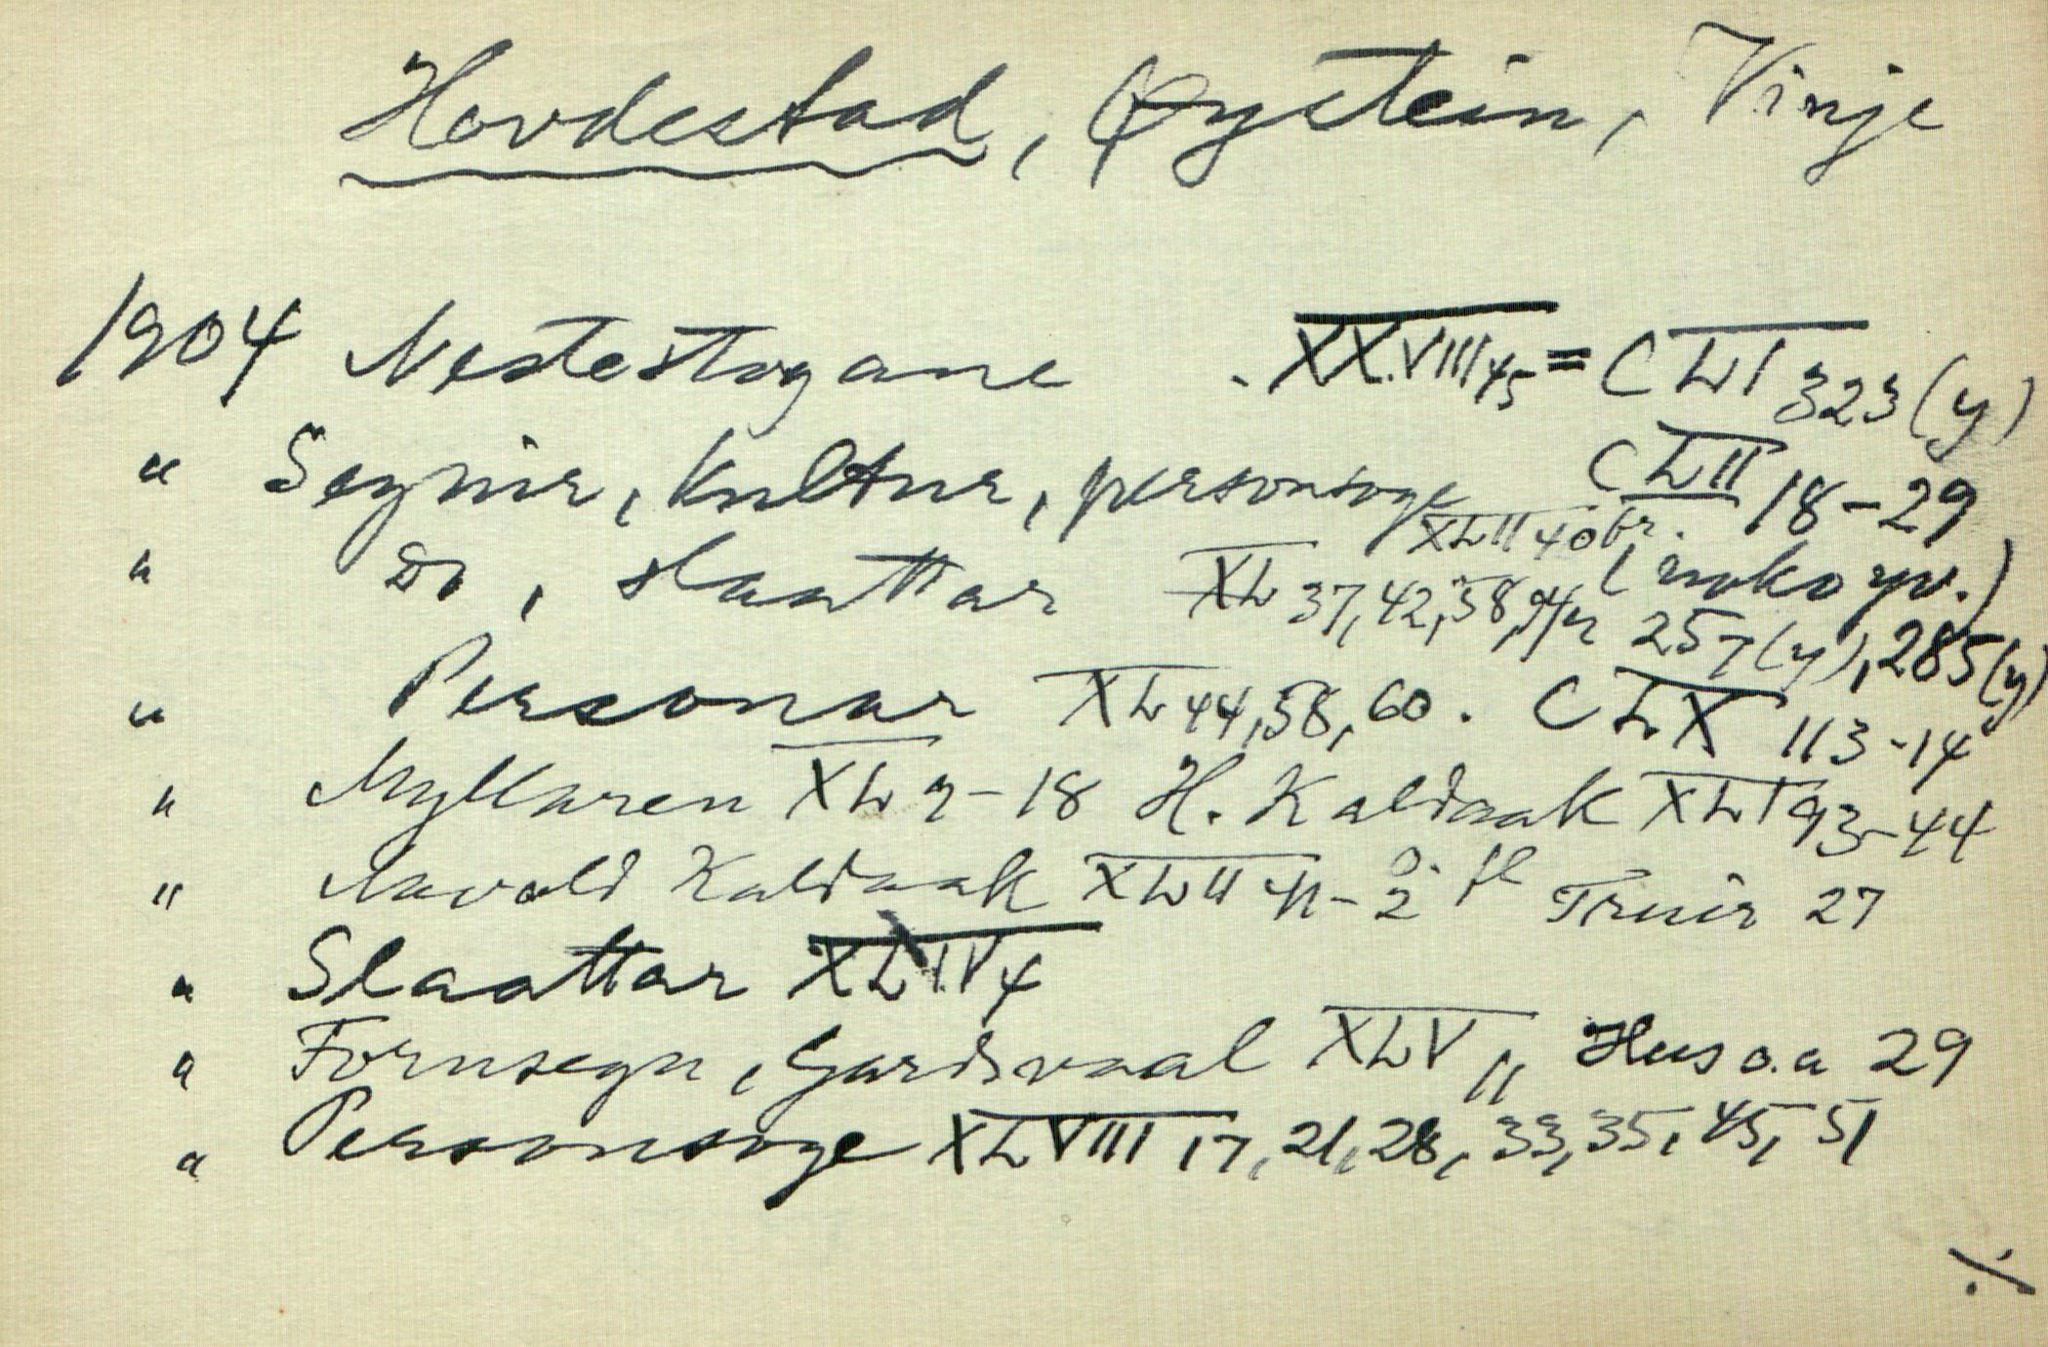 Hovdestad, Øystein, Vinje
1904 Nestestogane XXVIII 45 = CLVI 323 (y)
" Segnir, kultur, personsoge CLII 18-29
" Do, slaattar XL 37, 42, 58, XLII 40 br. (noko yv.)
257 (y), 285 (y)
" Personar XL 44, 58, 60. CLX 113-14
" Myllaren XL 7-18 H. Kaldaak XLI 93-44
" Aavold Kaldaak XLII 41-2 Truir 27
" Slaattar XLIV 4
" Fornsegn, Gardsvaal XLV 11 Hus o.a 29
" Personsoge XLVIII 17, 21, 28, 33, 35, 45, 51